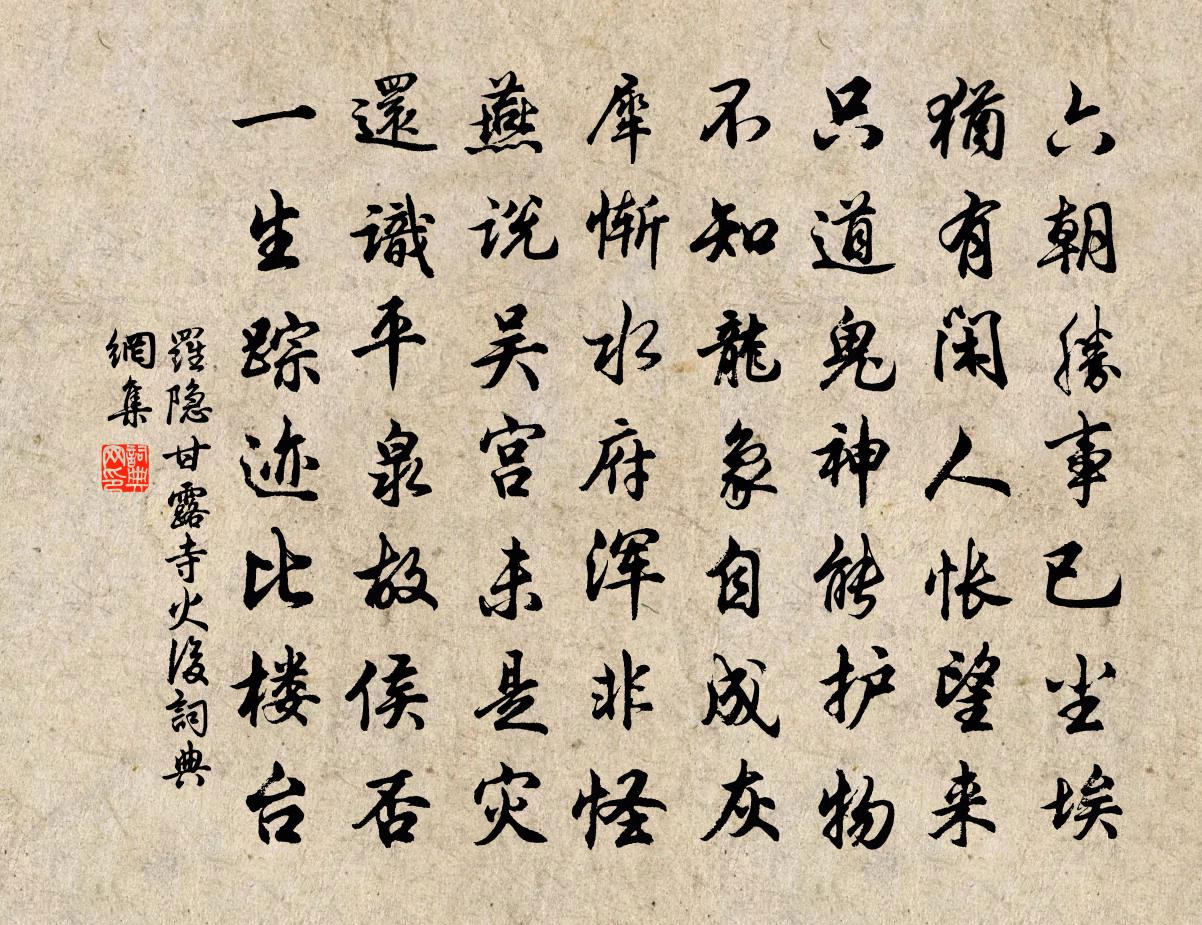 六朝勝事已尘埃
猶有闲人怅望来
只道鬼神能护物
不知龍象自成灰
犀惭水府浑非怪
燕说吴宫未是灾
還識平泉故侯否
一生踪迹比楼台
羅隐甘露寺火後詞典
網集
詞典
网印